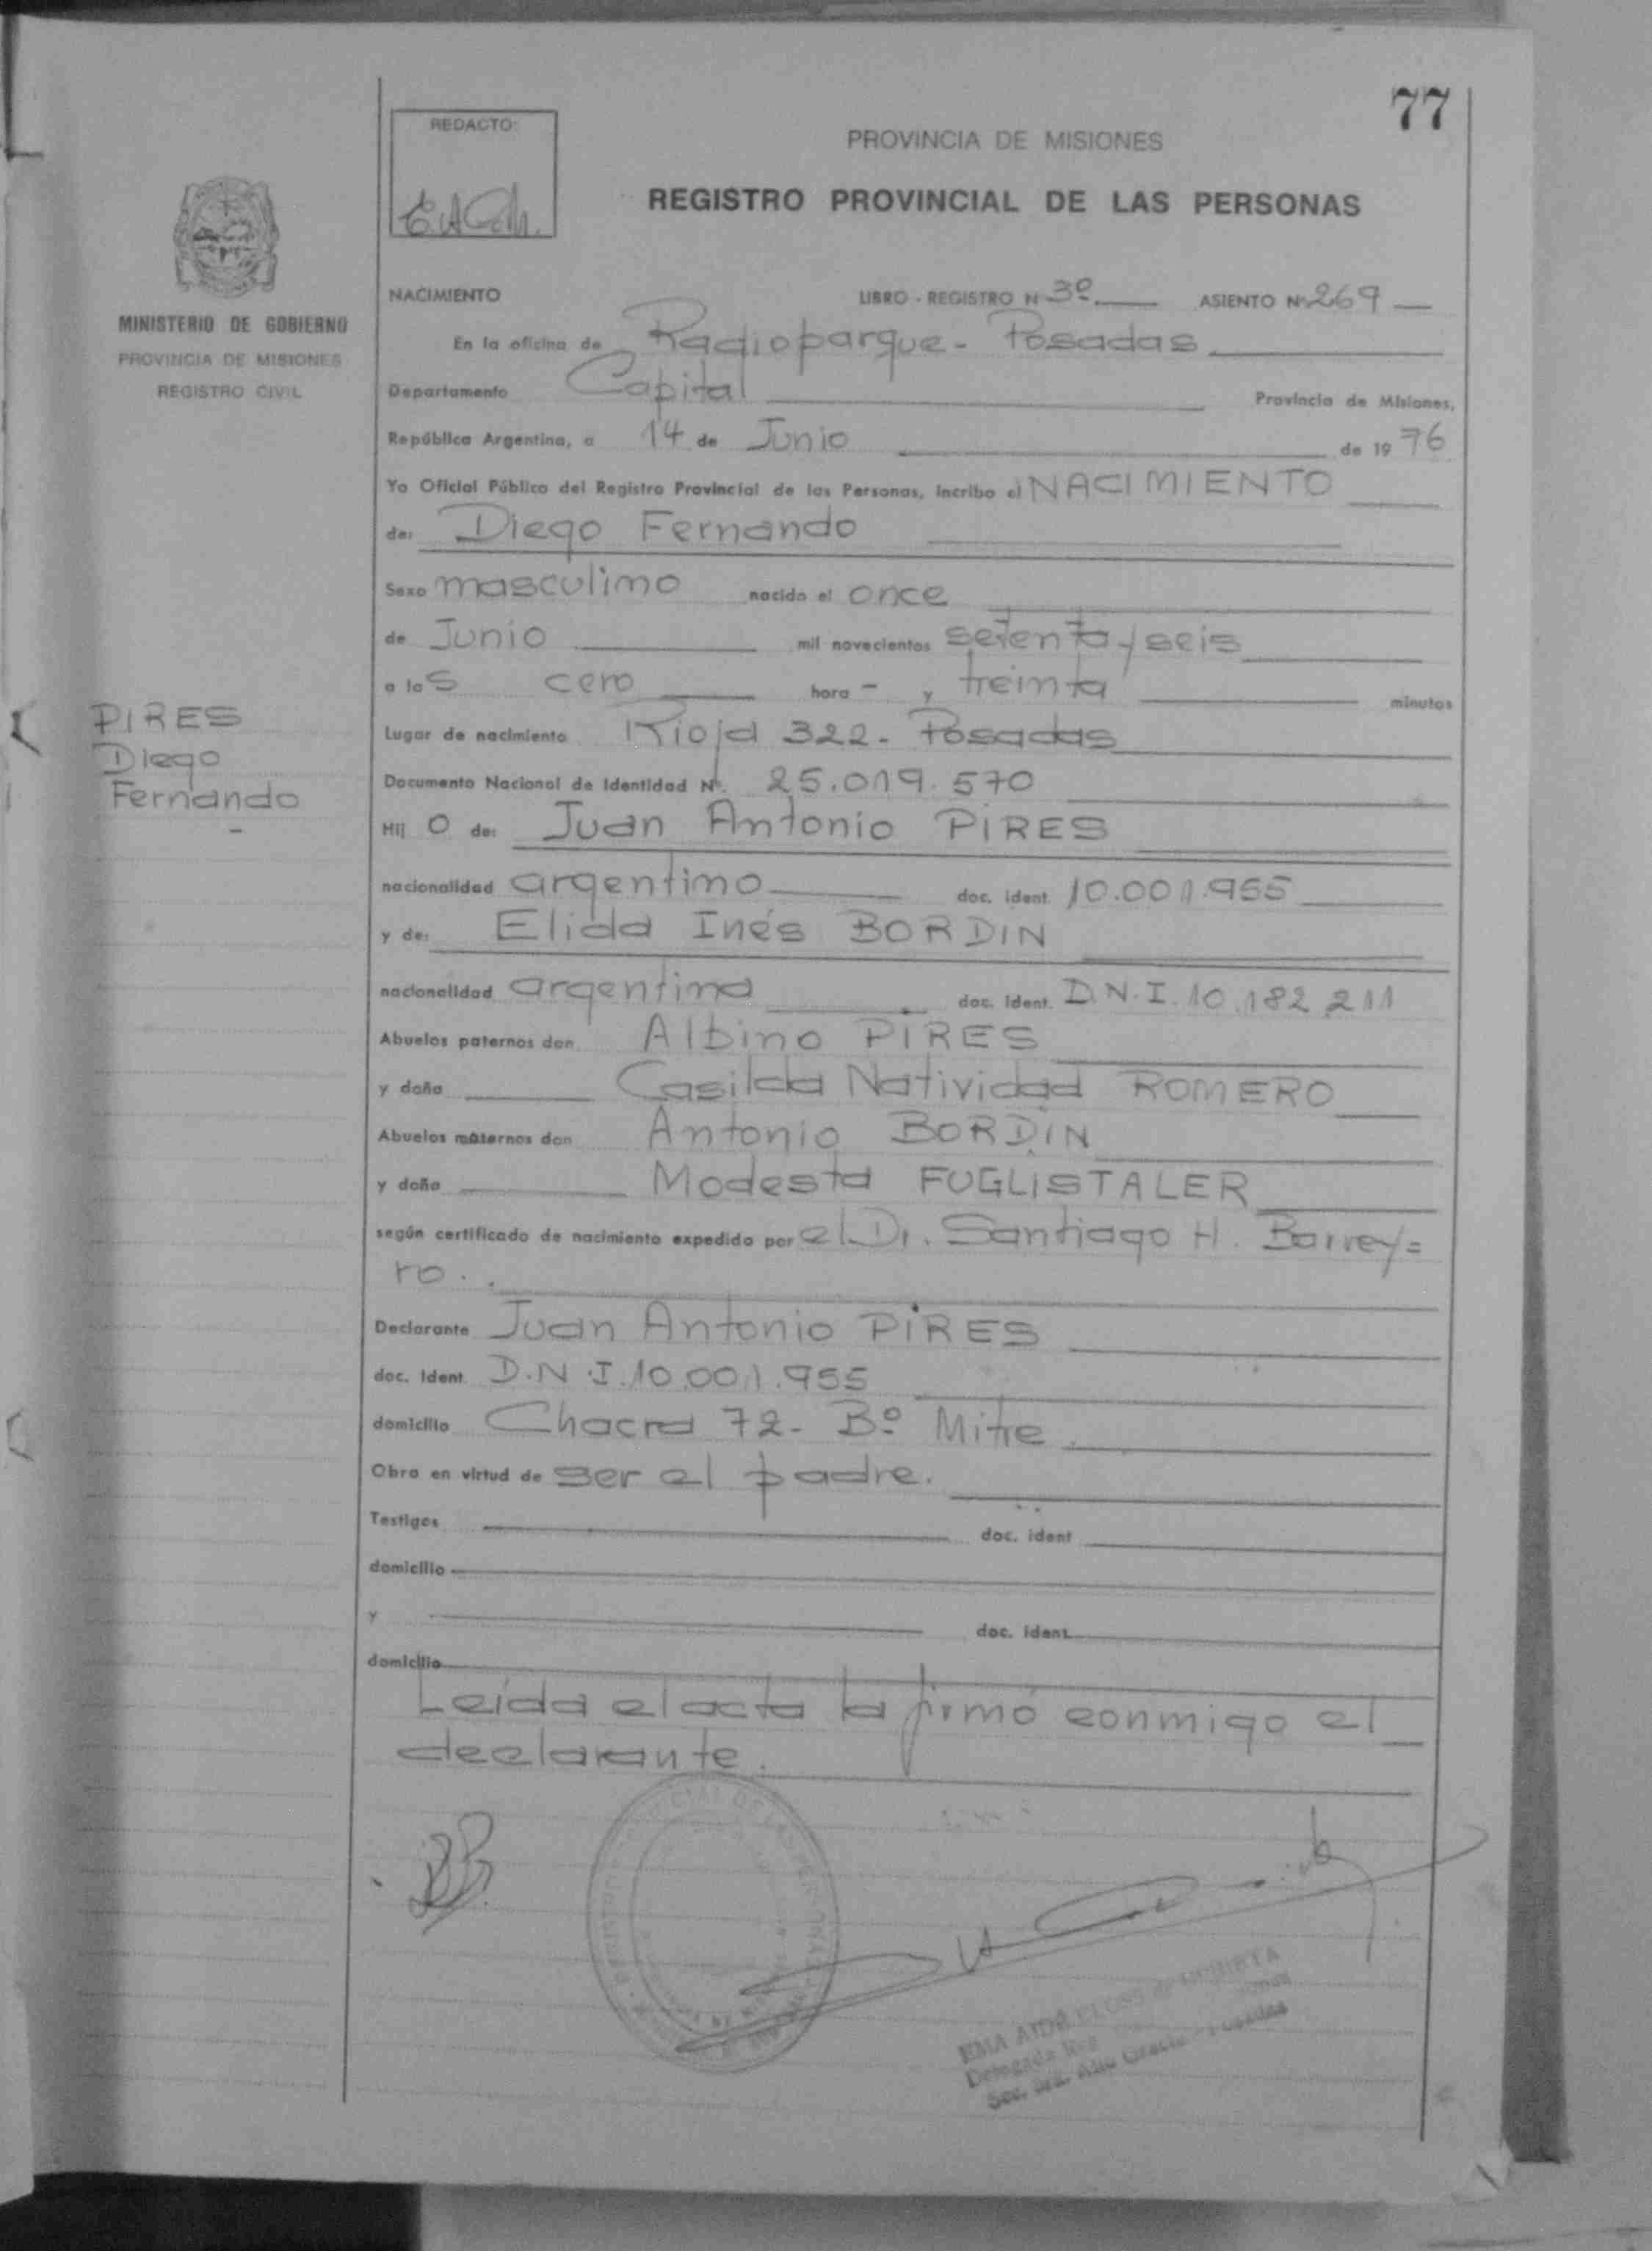 77
REDACTO:
PROVINCIA DE MISIONES
REGISTRO PROVINCIAL DE LAS PERSONAS
MINISTERIO DE GOBIERNO
PROVINCIA DE MISIONES
REGISTRO CIVIL
NACIMIENTO LIBRO - REGISTRO N 3º ASIENTO Nº 269
En la oficina de Radioparque - Posadas
Departamento Capital Provincia de Misiones,
República Argentina, a 14 de Junio de 1976
Yo Oficial Público del Registro Provincial de las Personas, incribo el NACIMIENTO
de: Diego Fernando
Sexo masculino nacido el once
de Junio mil novecientos setenta y seis
a las cero hora - y treinta minutos
PIRES
Diego
Fernando
-
Lugar de nacimiento Rioja 322 - Posadas
Documento Nacional de Identidad Nº. 25.019.570
Hij o de: Juan Antonio PIRES
nacionalidad argentino doc. ident. 10.001.955
y de: Elida Inés BORDIN
nacionalidad argentina doc. ident. D.N.I. 10.182.211
Abuelos paternos don Albino PIRES
y doña Casilda Natividad ROMERO
Abuelos maternos don Antonio BORDIN
y doña Modesta FUGLISTALER
según certificado de nacimiento expedido por el Dr. Santiago H. Barrey=
ro.
Declarante Juan Antonio PIRES
doc. ident. D.N.I. 10.001.955
domicilio Chacra 72 - Bº Mitre.
Obra en virtud de ser el padre.
Testigos doc. ident
domicilio
y doc. ident.
domicilio
Leída el acta la firmó conmigo el
declarante.
EMA AIDA
Delegada